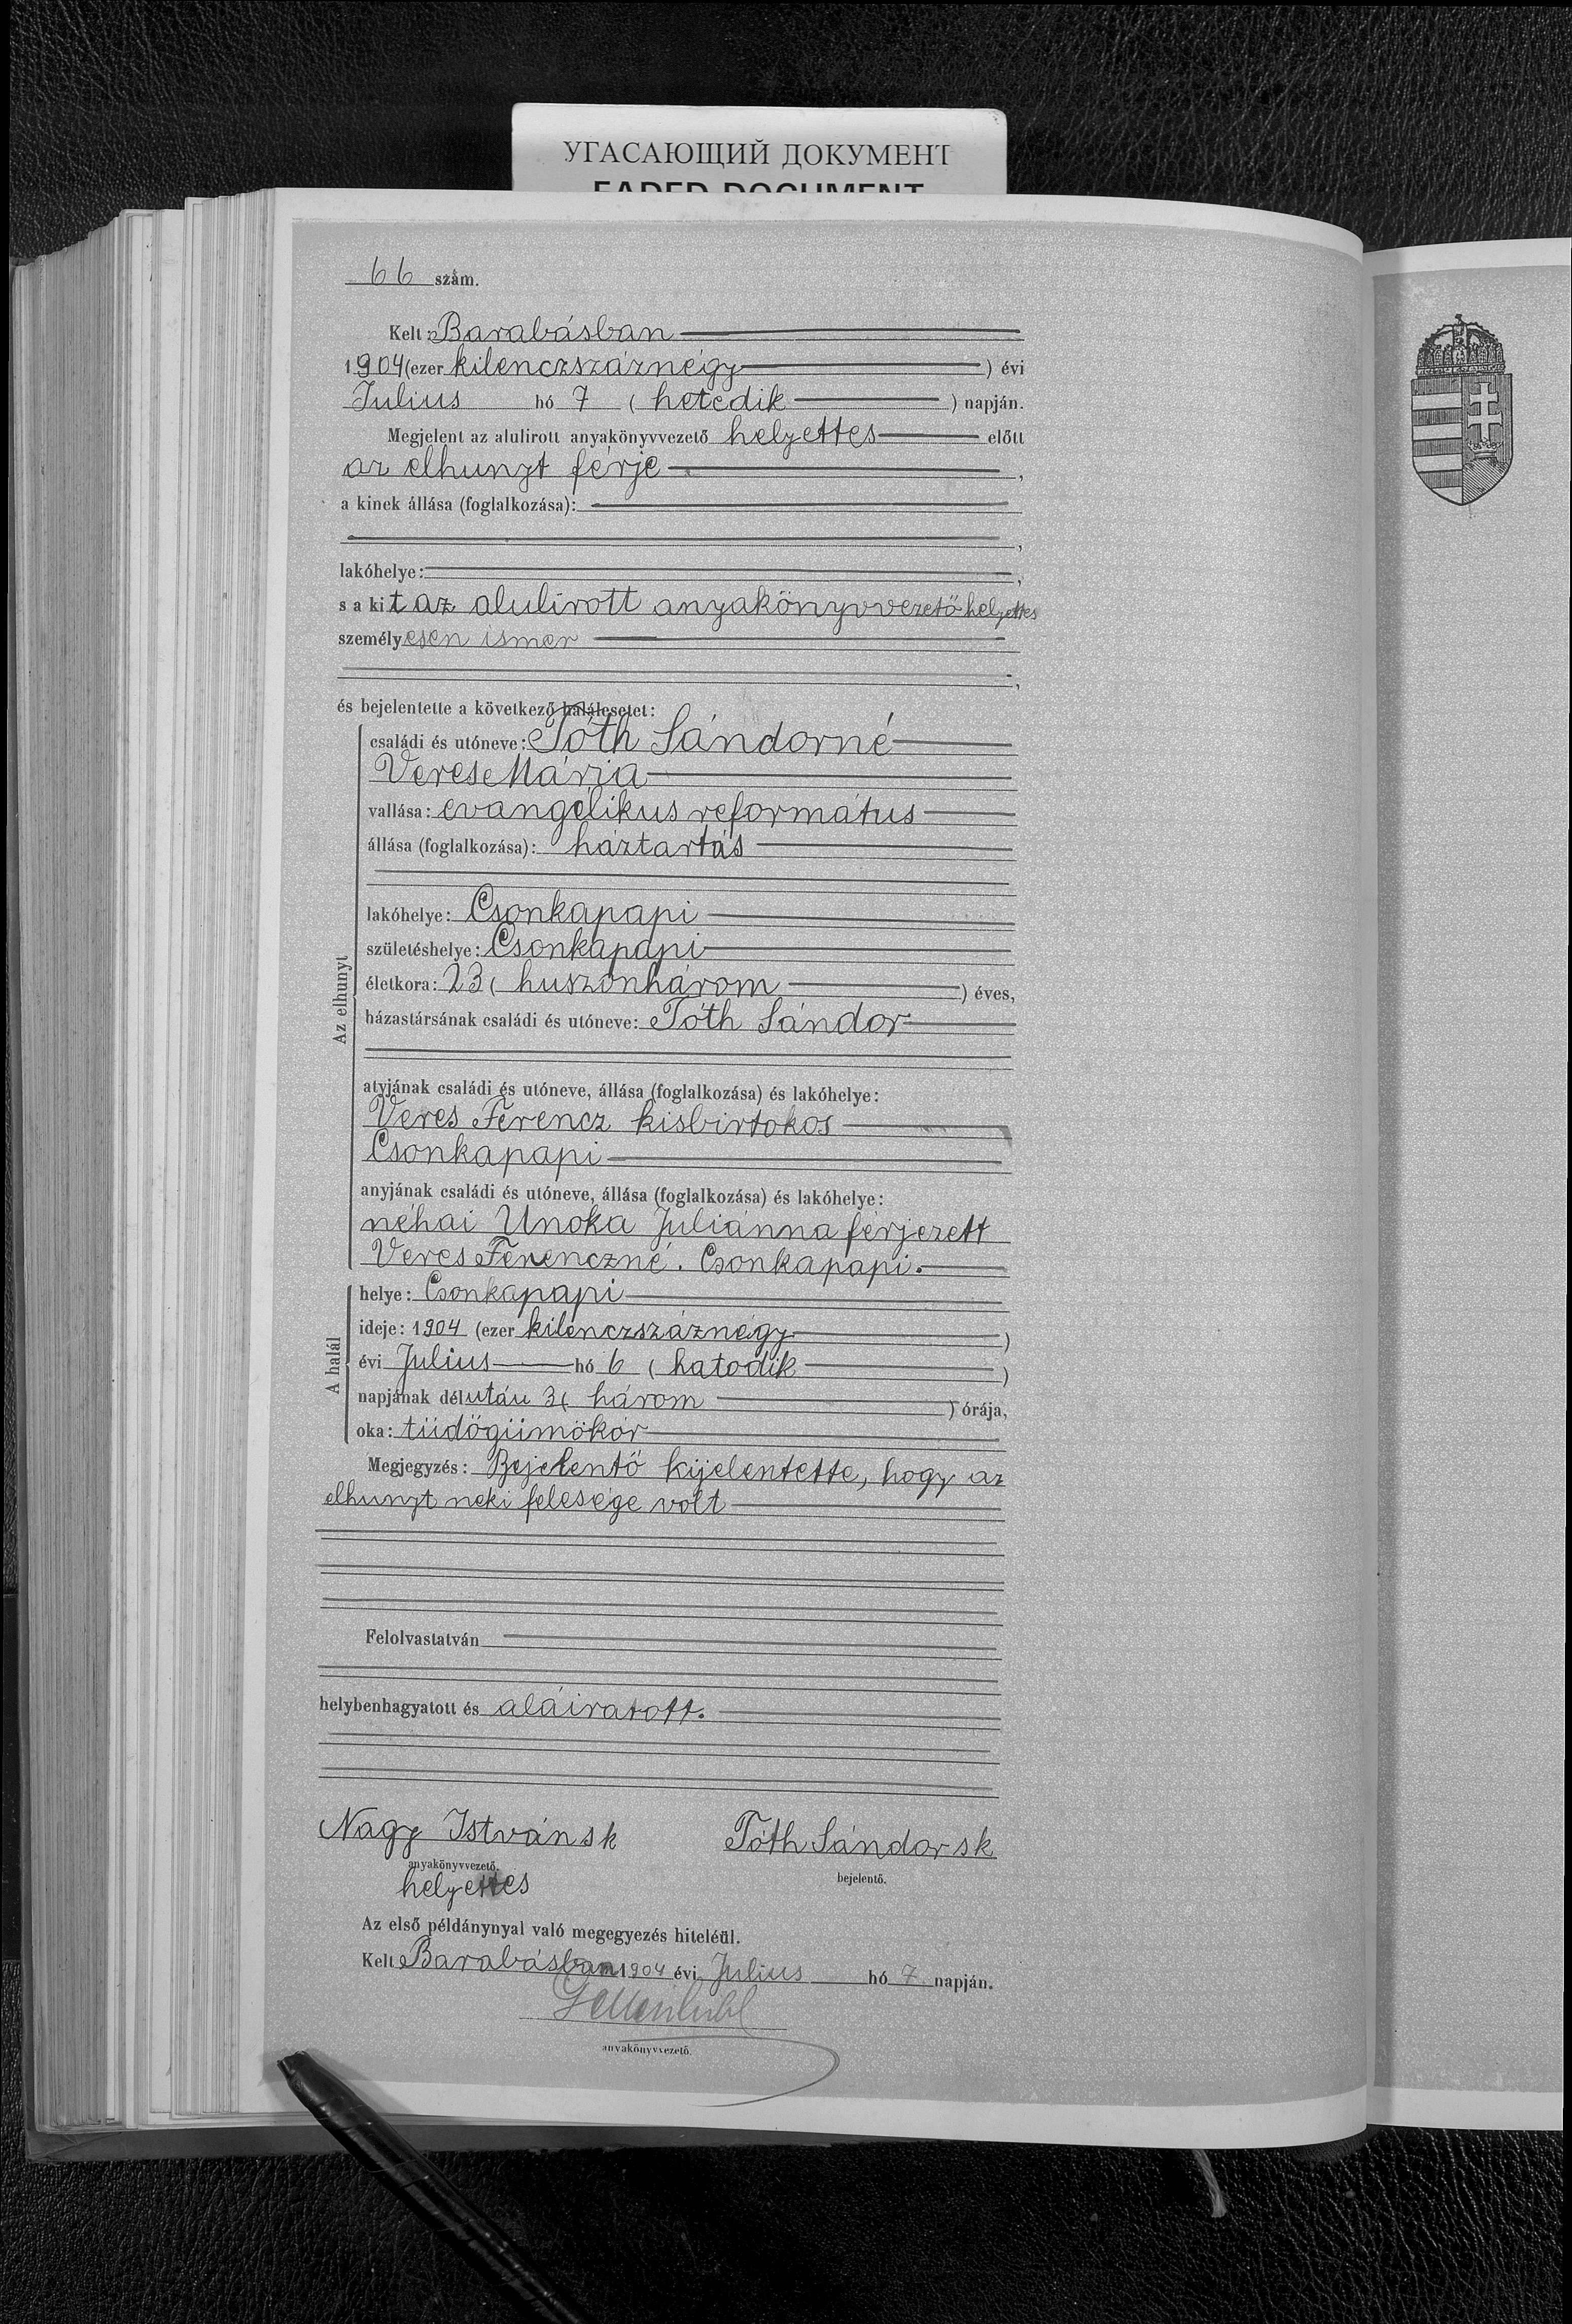 УГАСАЮЩИЙ ДОКУМЕНТ
FADED DOCUMENT
66 szám.
Kelt: Barabásban
1904 (ezer kilenczszáznégy) évi
Julius hó 7 (hetedik) napján.
Megjelent az alulirott anyakönyvvezető helyettes előtt
az elhunyt férje,
a kinek állása (foglalkozása):
,
lakóhelye:,
s a kit az alulirott anyakönyvvezető helyettes
személyesen ismer
,
és bejelentette a következő halálesetet:
Az elhunyt
családi és utóneve: Tóth Sándorné
Veres Mária
vallása: evangelikus református
állása (foglalkozása): háztartás
lakóhelye: Csonkapapi
születéshelye: Csonkapapi
életkora: 23 (huszonhárom) éves,
házastársának családi és utóneve: Tóth Sándor
atyjának családi és utóneve, állása (foglalkozása) és lakóhelye:
Veres Ferencz kisbirtokos
Csonkapapi
anyjának családi és utóneve, állása (foglalkozása) és lakóhelye:
néhai Unoka Juliánna férjezett
Veres Ferenczné. Csonkapapi.
A halál
helye: Csonkapapi
ideje: 1904 (ezer kilenczszáznégy)
évi Julius hó 6 (hatodik)
napjának délután 3 (három) órája,
oka: tüdögümökór
Megjegyzés: Bejelentő kijelentette, hogy az
elhunyt neki felesége volt
Felolvastatván
helybenhagyatott és aláiratott.
Nagy István sk
Tóth Sándor sk
anyakönyvvezető.
helyettes
bejelentő.
Az első példánynyal való megegyezés hiteléül.
Kelt Barabásban 1904 évi Julius hó 7 napján.
anyakönyvvezető.